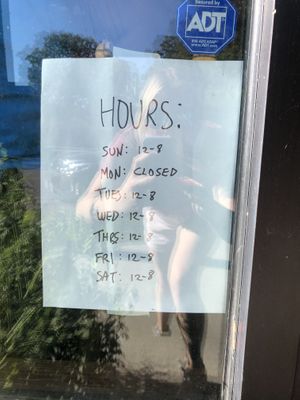 Secured by
ADT
HOURS:
SUN: 12-8
MON: CLOSED
TUES: 12-8
WED: 12-8
THRS: 12-8
FRI: 12-8
SAT: 12-8